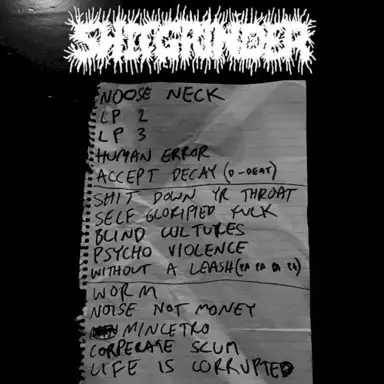 SHITGRINDER
NOOSE NECK
LP 2
LP 3
HUMAN ERROR
ACCEPT DECAY (D-BEAT)
SHIT DOWN YR THROAT
SELF GLORIFIED FUCK
BLIND CULTURES
PSYCHO VIOLENCE
WITHOUT A LEASH
WORM
NOISE NOT MONEY
MINCETRO
CORPERATE SCUM
LIFE IS CORRUPTED